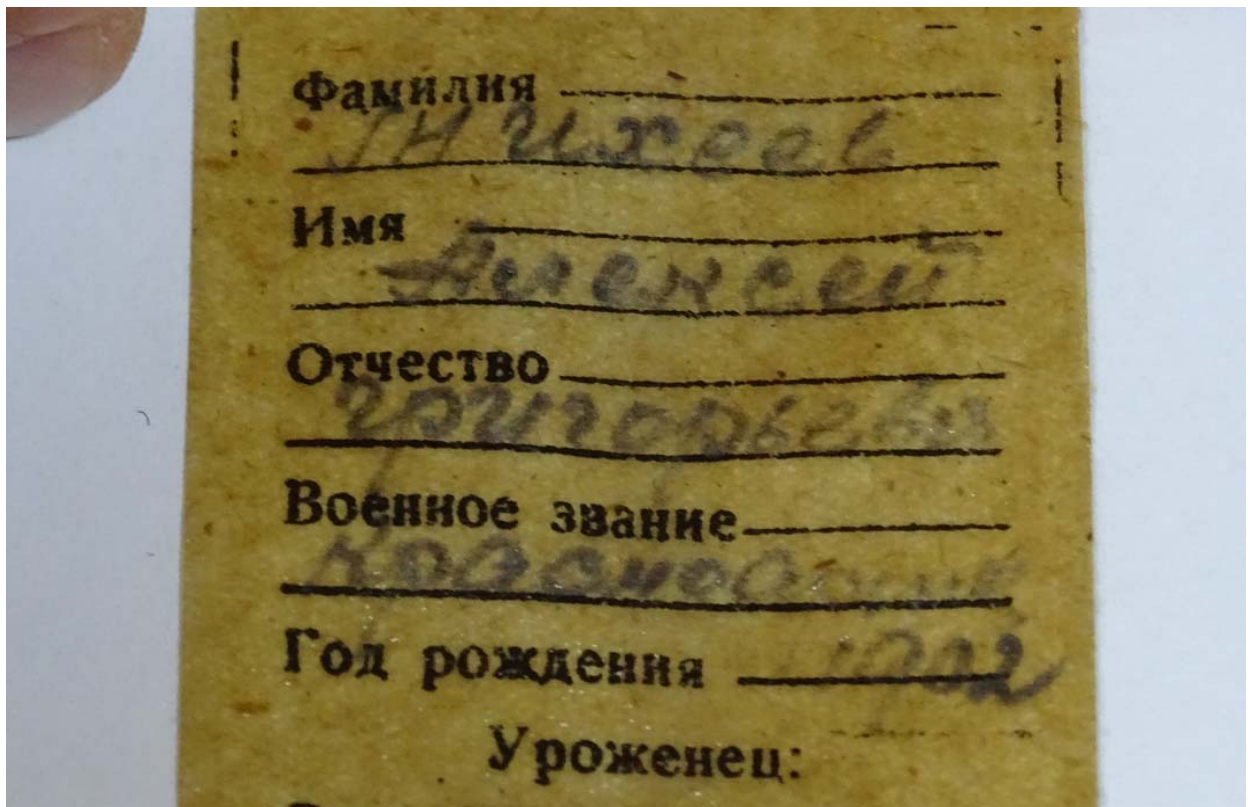 Фамилия
Михеев
Имя
Алексей
Отчество
Григорьевич
Военное звание
Год рождения 1902
Уроженец: